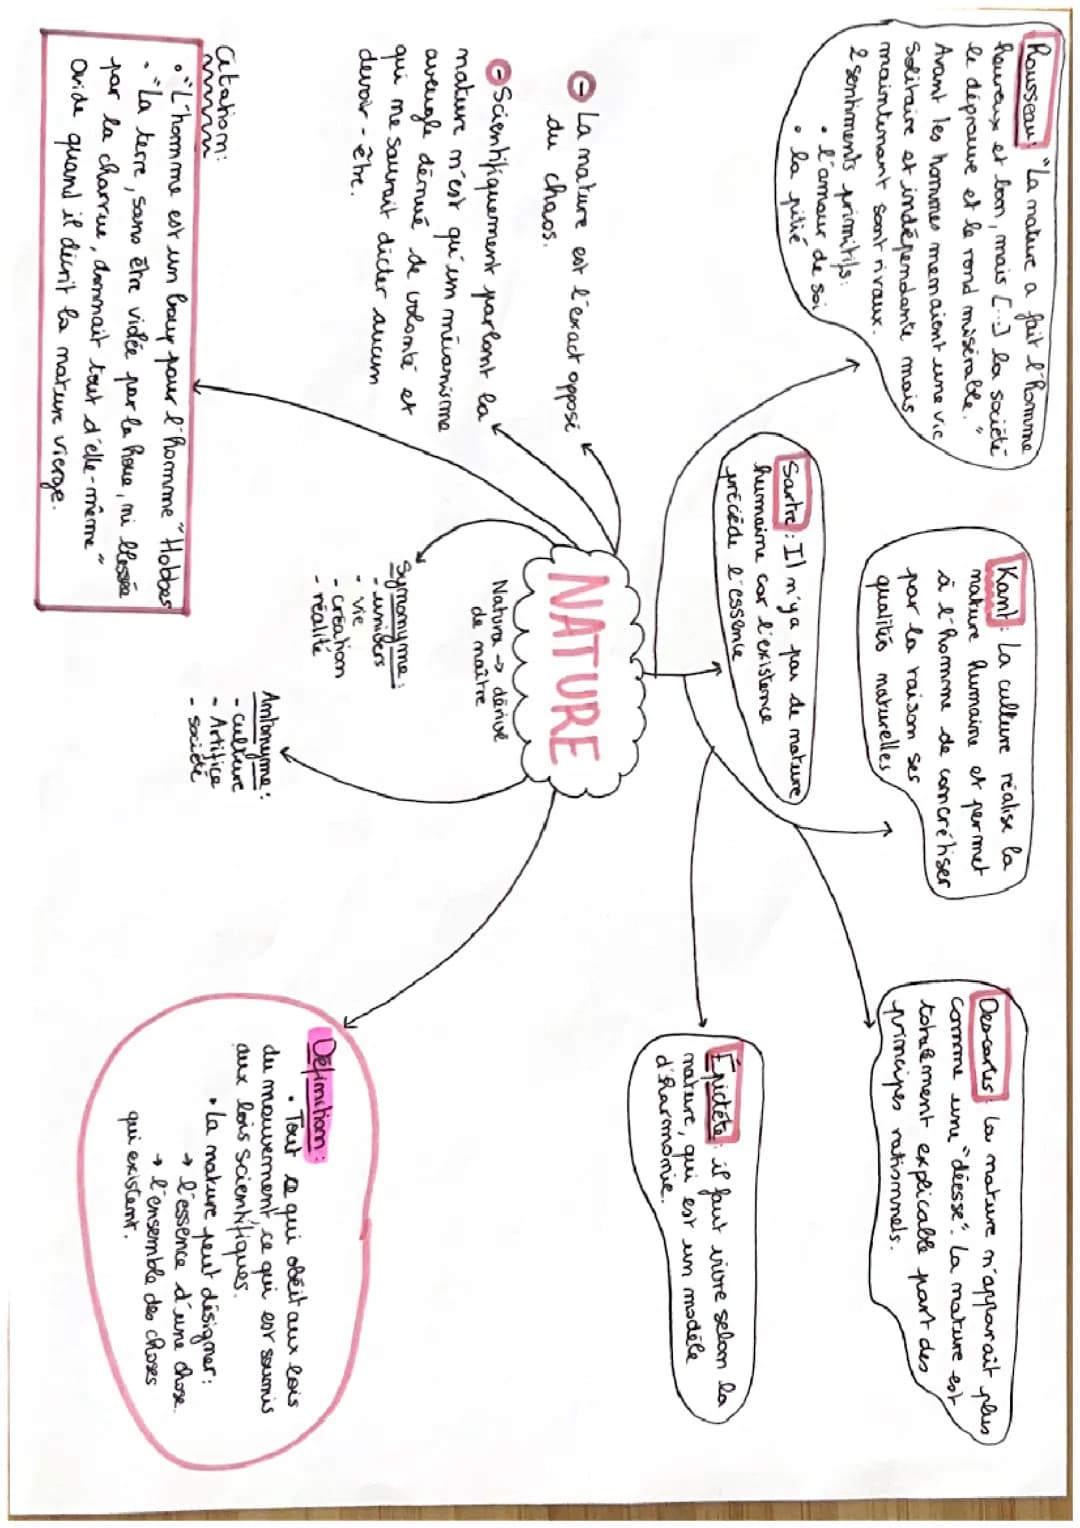 Rousseau: "La nature a fait l'homme
heureux et bon, mais [...] la société
le déprave et le rend misérable."
Avant les hommes menaient une vie
solitaire et indépendante mais
maintenant sont rivaux.
2 sentiments primitifs:
• l'amour de soi
• la pitié
Kant: La culture réalise la
nature humaine et permet
à l'homme de concrétiser
par la raison ses
qualités naturelles
Descartes: La nature n'apparait plus
comme une "déesse". La nature est
totalement explicable part des
principes rationnels.
Sartre: Il n'y a pas de nature
humaine car l'existence
précède l'essence
Épictète: il faut vivre selon la
nature, qui est un modèle
d'harmonie.
⊖ La nature est l'exact opposé
du chaos.
⊖ Scientifiquement parlant la
nature n'est qu'un mécanisme
aveugle dénué de volonté et
qui ne saurait dicter aucun
devoir-être.
NATURE
Natura → dérive
de naître
Synonyme:
- univers
- vie
- création
- réalité
Antonyme:
- culture
- Artifice
- société
Définition:
• Tout ce qui obéit aux lois
du mouvement ce qui est soumis
aux lois scientifiques.
• La nature peut désigner:
→ l'essence d'une chose
→ l'ensemble des choses
qui existent.
Citation:
• "L'homme est un loup pour l'homme" Hobbes
• "La terre, sans être violée par la houe, ni blessée
par la charrue, donnait tout d'elle-même"
Ovide quand il décrit la nature vierge.